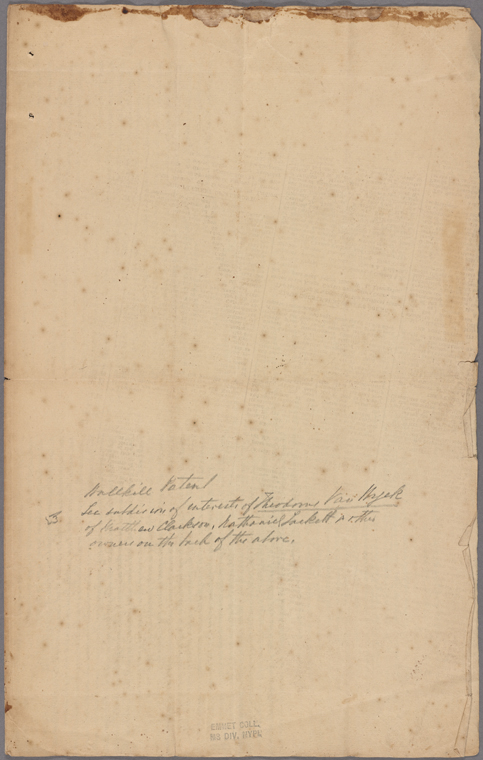 Wallkill Patent
See subdivision of interests of Theodorus Van Wyck
of Matthew Clarkson, Nathaniel Sackett & other
owners on the back of the above.
EMMET COLL.
MS DIV. NYPL